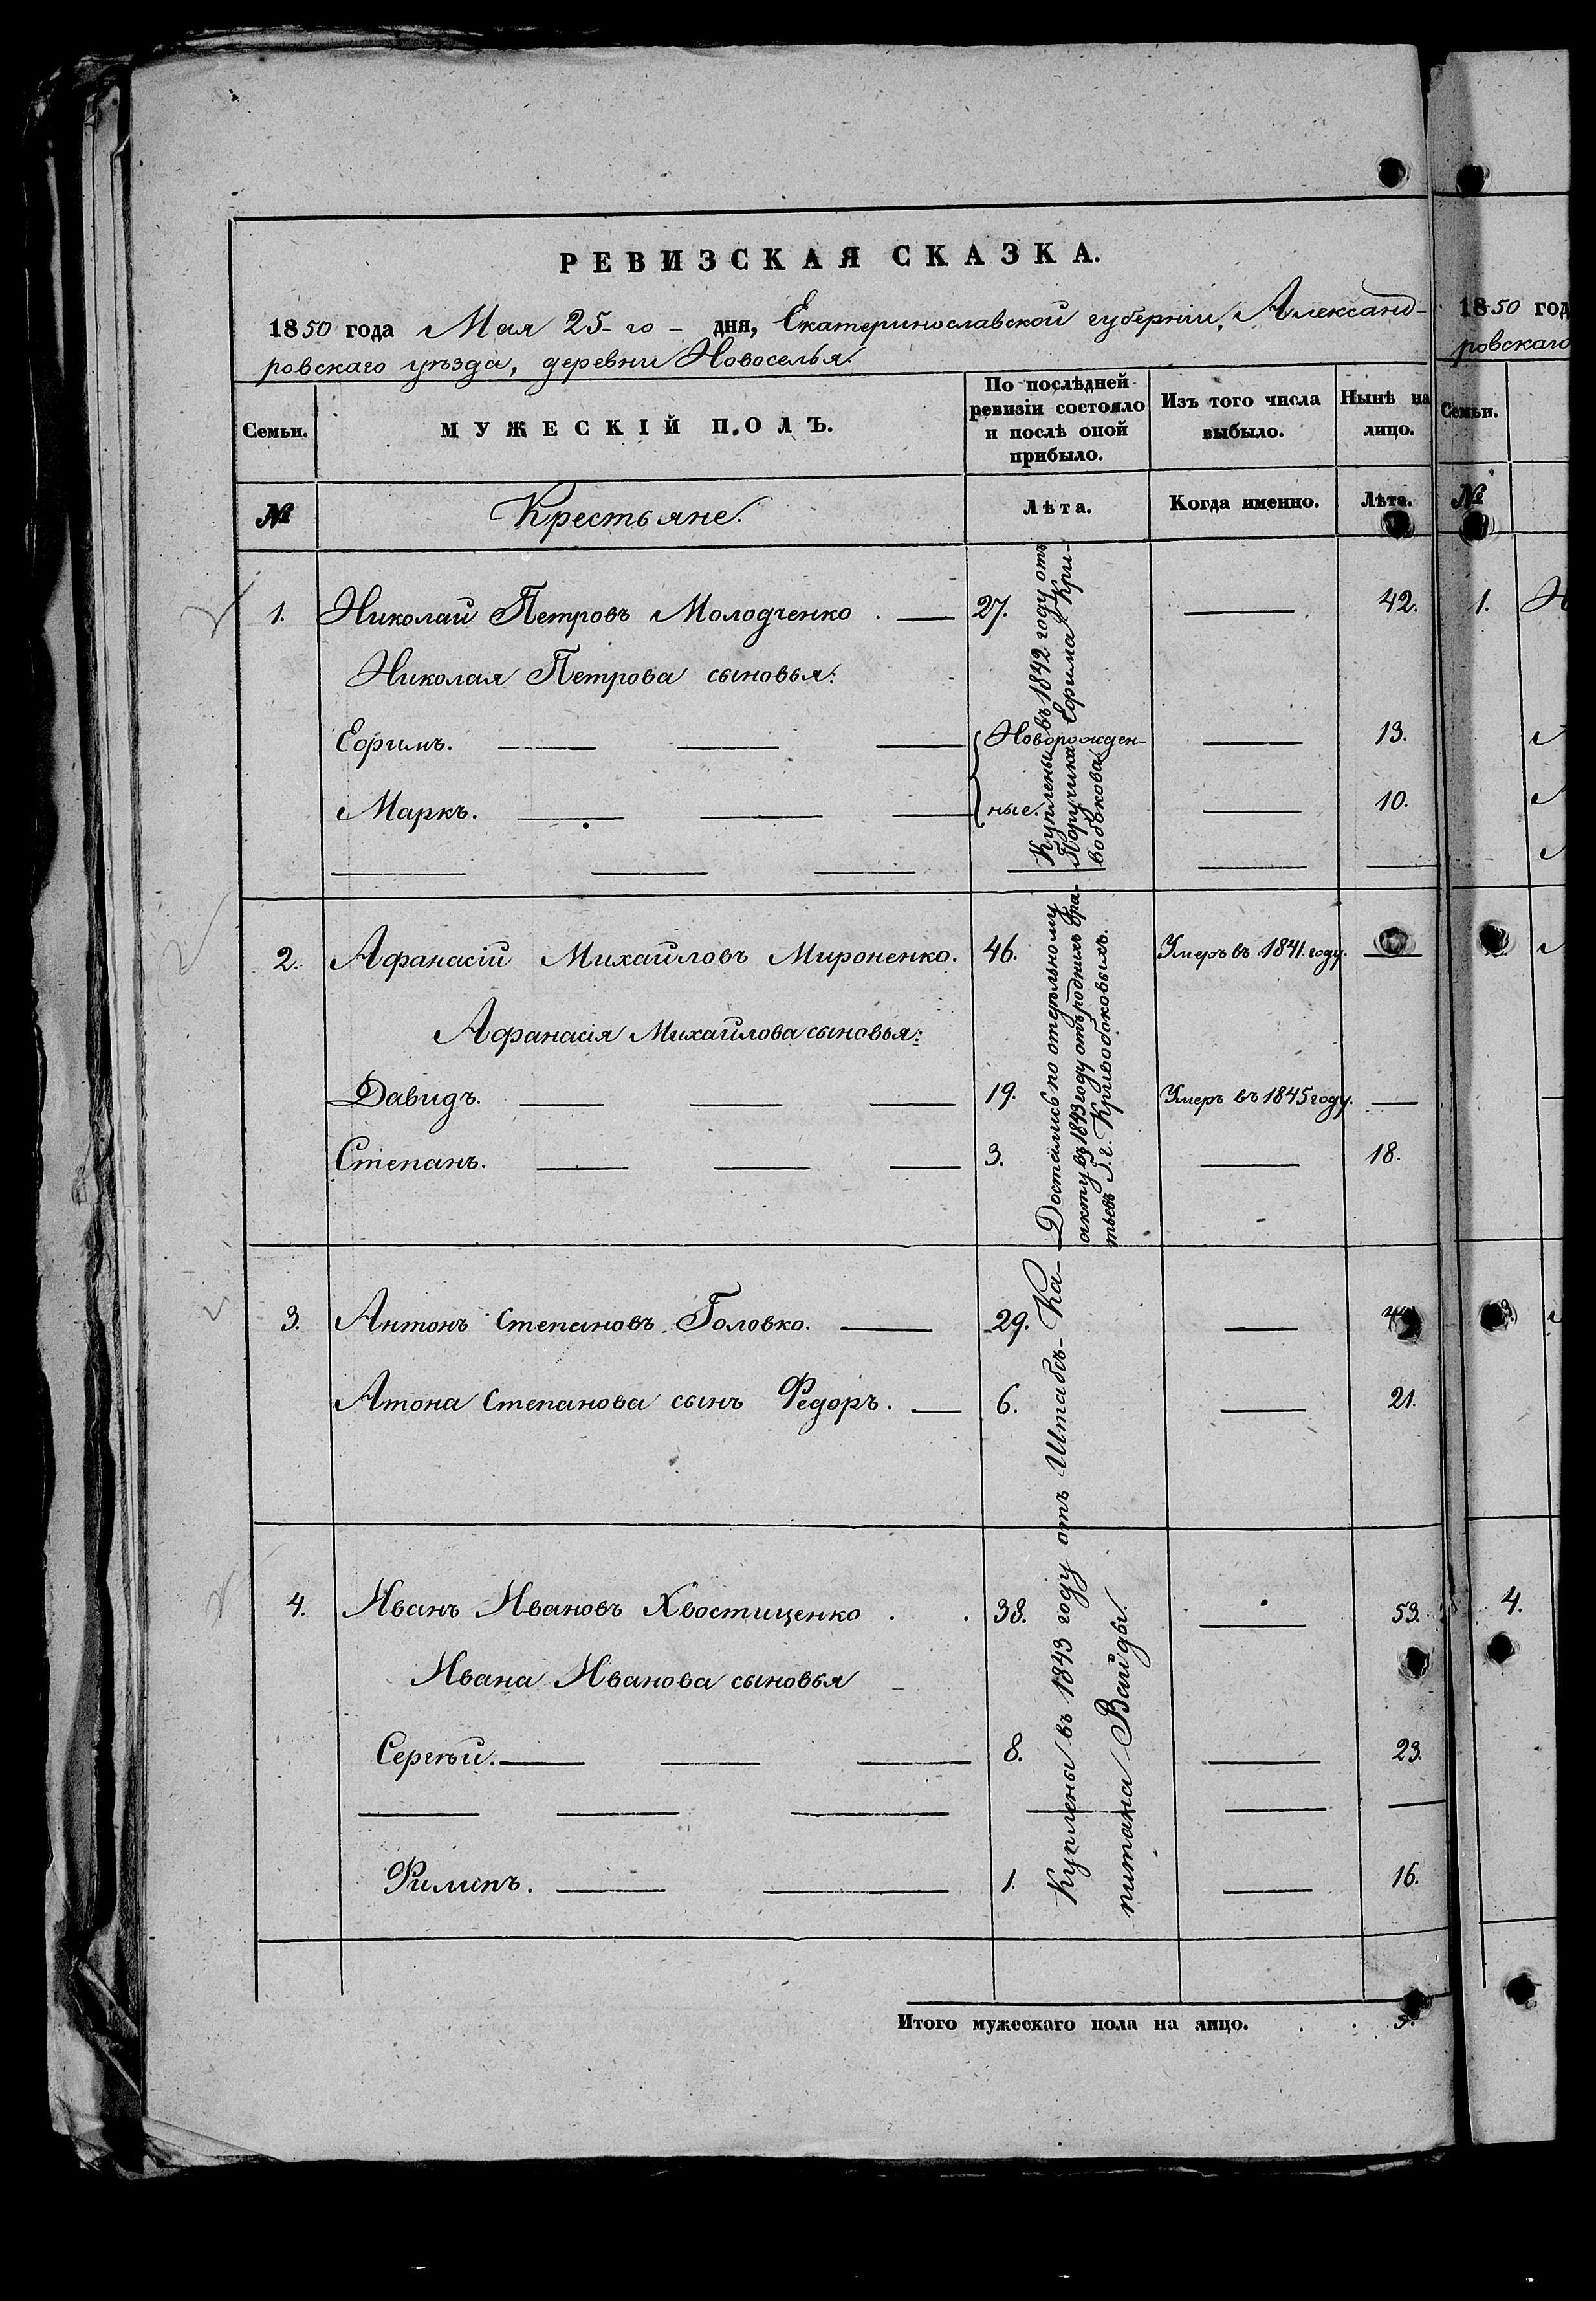 РЕВИЗСКАЯ СКАЗКА.
1850 года Мая 25-го - дня, Екатеринославской губерніи, Александ-
ровскаго уѣзда, деревни Новоселья.
Семьи.
МУЖЕСКІЙ ПОЛЪ.
По послѣдней
ревизіи состояло
и послѣ оной
прибыло.
Изъ того числа
выбыло.
Нынѣ на
лицо.
№
Крестьяне.
Лѣта.
Когда именно.
Лѣта.
1. Николай Петровъ Молодченко . — 27. — 42.
Николая Петрова сыновья:
Ефимъ. — — — Новорожден- — 13.
Маркъ. — — — ные. — 10.
Куплены въ 1842 году отъ
Поручика Ефима Кри-
вобокова
2. Афанасій Михайловъ Мироненко. 46. Умеръ въ 1841. году. —
Афанасія Михайлова сыновья:
Давидъ. — — — 19. Умеръ въ 1845 году. —
Степанъ. — — — 3. — 18.
Достались по отдѣльному
акту въ 1843 году отъ родныхъ бра-
тьевъ Г. г. Кривобоковыхъ.
3. Антонъ Степановъ Головко. — 29. —
Атона Степанова сынъ Федоръ. — 6. — 21.
4. Иванъ Ивановъ Хвостиценко . . 38. — 53.
Ивана Иванова сыновья
Сергѣй. — — — 8. — 23.
Филипъ. — — 1. — 16.
Куплены въ 1843 году отъ Штабсъ-Ка-
питана Вайды.
Итого мужескаго пола на лицо. . .
1850 год
ровскаго
Семьи.
№
1.
4.